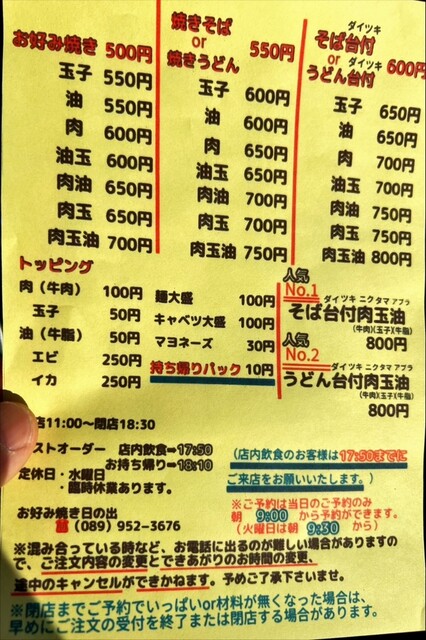 お好み焼き 500円
玉子 550円
油 550円
肉 600円
油玉 600円
肉油 650円
肉玉 650円
肉玉油 700円
焼きそば
or
焼きうどん 550円
玉子 600円
油 600円
肉 650円
油玉 650円
肉油 700円
肉玉 700円
肉玉油 750円
ダイツキ
そば台付
or ダイツキ
うどん台付 600円
玉子 650円
油 650円
肉 700円
油玉 700円
肉油 750円
肉玉 750円
肉玉油 800円
トッピング
肉（牛肉） 100円
玉子 50円
油（牛脂） 50円
エビ 250円
イカ 250円
麺大盛 100円
キャベツ大盛 100円
マヨネーズ 30円
持ち帰りパック 10円
人気
No.1 ダイツキ ニクタマ アブラ
そば台付肉玉油
(牛肉)(玉子)(牛脂)
800円
人気
No.2 ダイツキ ニクタマ アブラ
うどん台付肉玉油
(牛肉)(玉子)(牛脂)
800円
店11:00〜閉店18:30
ストオーダー 店内飲食➡17:50
お持ち帰り➡18:10
定休日・水曜日
・臨時休業あります。
（店内飲食のお客様は17:50までに
ご来店をお願いいたします。）
お好み焼き日の出
☎(089) 952-3676
※ご予約は当日のご予約のみ
朝 9:00 から予約ができます。
（火曜日は朝 9:30 から）
※混み合っている時など、お電話に出るのが難しい場合がありますの
で、ご注文内容の変更とできあがりのお時間の変更、
途中のキャンセルができかねます。予めご了承下さいませ。
※閉店までご予約でいっぱいor材料が無くなった場合は、
早めにご注文の受付を終了または閉店する場合があります。